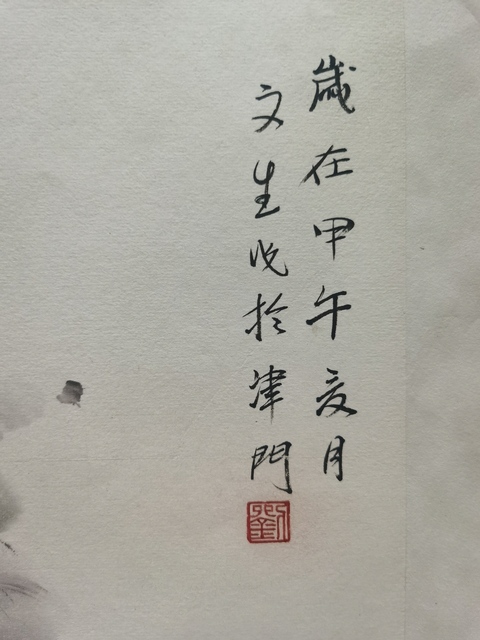 歲在甲午夏月
文生於津門
劉